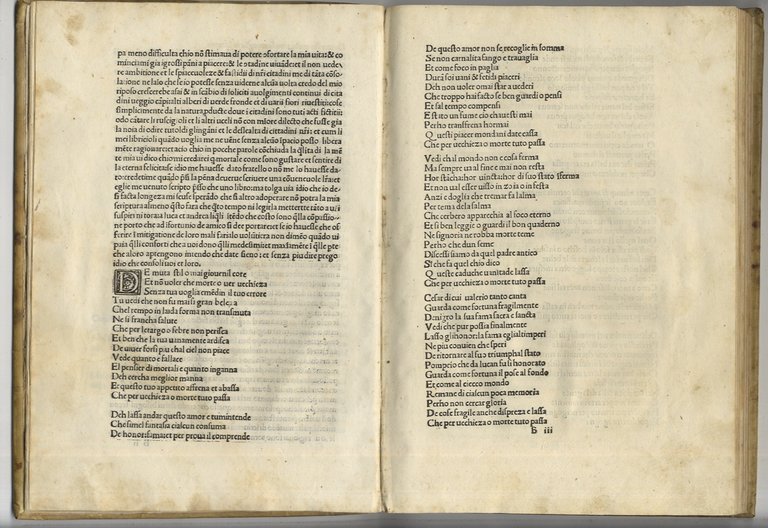 pa meno difficulta chio nō stimaua di potere ꝯfortare la mia uita: & co
minciami gia i grossi pāni a piacere: & le ꝯtadine uiuāde: et il non uede
re ambitione et le spiaceuoleze & fastidi di nr̄i citadini me di tāta cōso
latione ne laio che se io potesse senza uiderne alcūa uolta credo del mio
riposo crescerebe asai & in scābio di soliciti auolgimenti continui di cita
dini ueggio capi alti alberi di uerde fronde et di uarii fiori riuestiti: cose
simplicemente da la natura ꝓducte doue i citadini sono tuti acti fictitii:
odo cātare li rusciguoli et li altri ucelli nō cum mīore dilecto che fusse gia
la noia di odire tutoldi gli ingāni et le dislealta di cittadini nr̄i: et cum li
mei libricioli quādo uoglia me ne uēne senza alcūo ipacio posso libera
mēte ragionare: et acio chio in poche parole cōchiuda la q̄lita di la mē
te mia ui dico chio mi crederei q̄ mortale come sono gustare et sentire di
la eterna felicita se idio me hauesse dato fratello o nō me lo hauesse da
to:
si facta longeza mi scuse sperādo
scriptura almeno q̄sto fara che q̄sto tempo ni legirla mettereti
suspiri ni torara luca et andrea
ne porto che ad infortunio de amico si dee portare: et se io hauesse che of
ferire
puti q̄lli cōforti che a uoi dono q̄lli medesimi et maxīamēte
che aloro aptengono intendo che dati sieno: et senza piu dire prego
idio che consoli uoi et loro.
DE muta stil o mai giouenil core
Et nō uoler che morte o uer uechieza
Senza tua uoglia emēdin il tuo errore
Tu uedi che non fu mai si gran beleza
Chel tempo in lada forma non transmuta
Ne si francha salute
Che per letargo o febre non perisca
Et ben che la tua uanamente ardisca
De uiuer forsi piu chal ciel non piace
Vede quanto e fallace
El pensier di mortali e quanto inganna
Deh cercha meglior manna
Et questo tuo appetito affrena et abassa
Che per uechieza o morte tuto passa
Deh lassa andar questo amor e tu mintende
Che simel fantasia ciascun consuma
De honor: fama: et per proua il comprende
De questo amor non se recoglie in somma
Se non carnalita fango e trauaglia
Et come foco in paglia
Dura soi uani & fetidi piaceri
Deh non uoler omai star a uederi
Che troppo hai facto se ben guardi o pensi
Et fal tempo compensi
E stato un fume cio chauesti mai
Perho transtena hormai
Questi piacer mondani date cassa
Che per uechieza o morte tuto passa
Vedi chal mondo non e cosa ferma
Ma sempre ua al fine e mai non resta
Hor sta ichachor uinctachor di suo stato sferma
Et non ual esser uisso in zoia o in festa
Anzi e doglia che tremar fa lalma
Per tema dela salma
Che cerbero apparechia al foco eterno
Et si ben leggie o guardi il bon quaderno
Ne signoria ne robba morte teme
Perho che dun seme
Discessi siamo da quel padre antico
Si che fa quel chio dico
Queste caduche uanitade lassa
Che per uechieza o morte tuto passa
Cesar di cui ualerio tanto canta
Guarda come fortuna fragilmente
Denigro la sua fama sacra e sancta
Vedi che pur possa finalmente
Lasso gli honor: la fama e gli alt imperi
Ne piu conuien che speri
De ritornare al suo triumphal stato
Pompeio che da lucan fu si honorato
Guarda come fortuna il pose al fondo
Et come al ciecco mondo
Remane di ciascun poca memoria
Perho non cercar gloria
De cose fragile anche dispreza e lassa
Che per uechieza o morte tuto passa
b iii